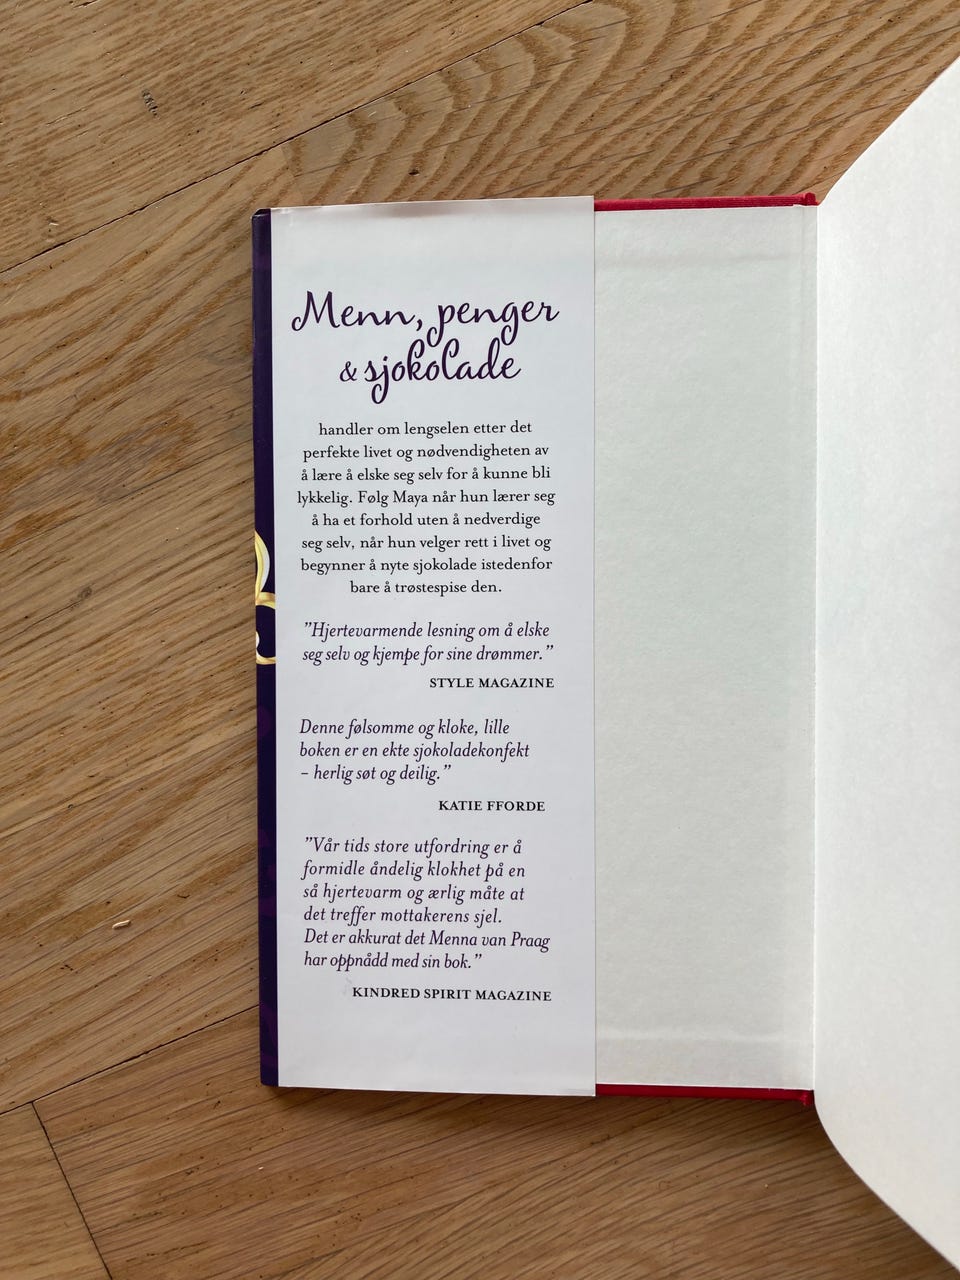 Menn, penger
& sjokolade
handler om lengselen etter det
perfekte livet og nødvendigheten av
å lære å elske seg selv for å kunne bli
lykkelig. Følg Maya når hun lærer seg
å ha et forhold uten å nedverdige
seg selv, når hun velger rett i livet og
begynner å nyte sjokolade istedenfor
bare å trøstespise den.
”Hjertevarmende lesning om å elske
seg selv og kjempe for sine drømmer.”
STYLE MAGAZINE
Denne følsomme og kloke, lille
boken er en ekte sjokoladekonfekt
– herlig søt og deilig.”
KATIE FFORDE
”Vår tids store utfordring er å
formidle åndelig klokhet på en
så hjertevarm og ærlig måte at
det treffer mottakerens sjel.
Det er akkurat det Menna van Praag
har oppnådd med sin bok.”
KINDRED SPIRIT MAGAZINE